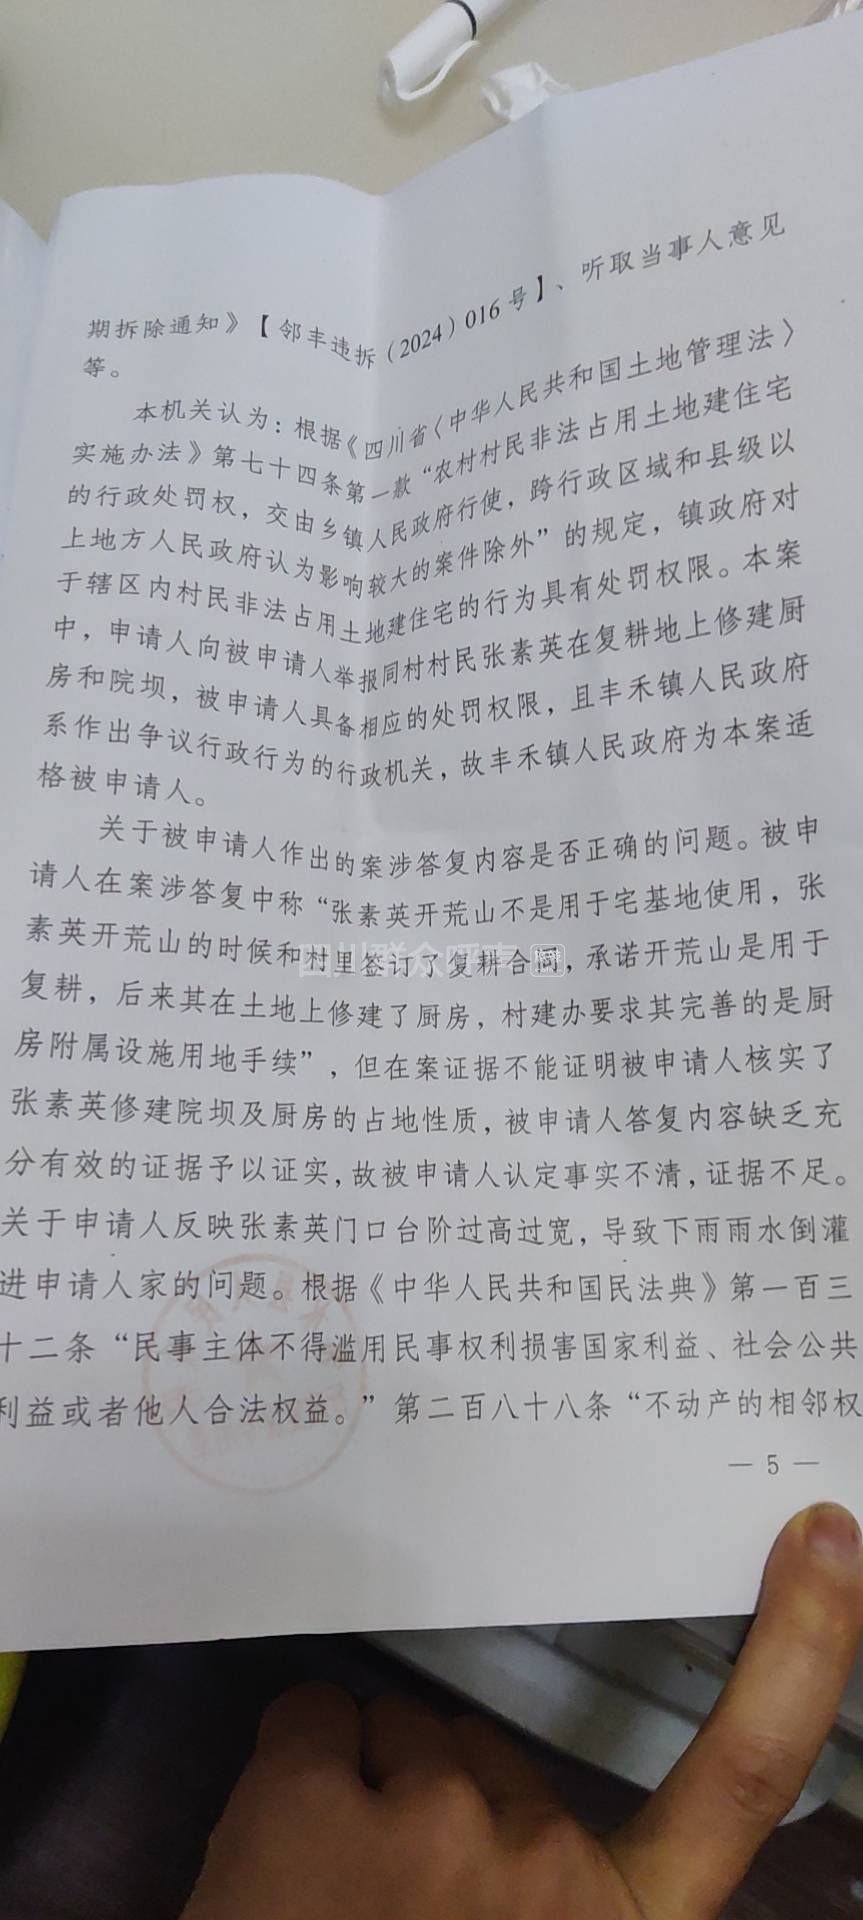 期拆除通知》【邻丰违拆（2024）016号】、听取当事人意见
等。
本机关认为：根据《四川省〈中华人民共和国土地管理法〉
实施办法》第七十四条第一款“农村村民非法占用土地建住宅
的行政处罚权，交由乡镇人民政府行使，跨行政区域和县级以
上地方人民政府认为影响较大的案件除外”的规定，镇政府对
于辖区内村民非法占用土地建住宅的行为具有处罚权限。本案
中，申请人向被申请人举报同村村民张素英在复耕地上修建厨
房和院坝，被申请人具备相应的处罚权限，且丰禾镇人民政府
系作出争议行政行为的行政机关，故丰禾镇人民政府为本案适
格被申请人。
关于被申请人作出的案涉答复内容是否正确的问题。被申
请人在案涉答复中称“张素英开荒山不是用于宅基地使用，张
素英开荒山的时候和村里签订了复耕合同，承诺开荒山是用于
复耕，后来其在土地上修建了厨房，村建办要求其完善的是厨
房附属设施用地手续”，但在案证据不能证明被申请人核实了
张素英修建院坝及厨房的占地性质，被申请人答复内容缺乏充
分有效的证据予以证实，故被申请人认定事实不清，证据不足。
关于申请人反映张素英门口台阶过高过宽，导致下雨雨水倒灌
进申请人家的问题。根据《中华人民共和国民法典》第一百三
十二条“民事主体不得滥用民事权利损害国家利益、社会公共
利益或者他人合法权益。”第二百八十八条“不动产的相邻权
— 5 —
四川群众呼声